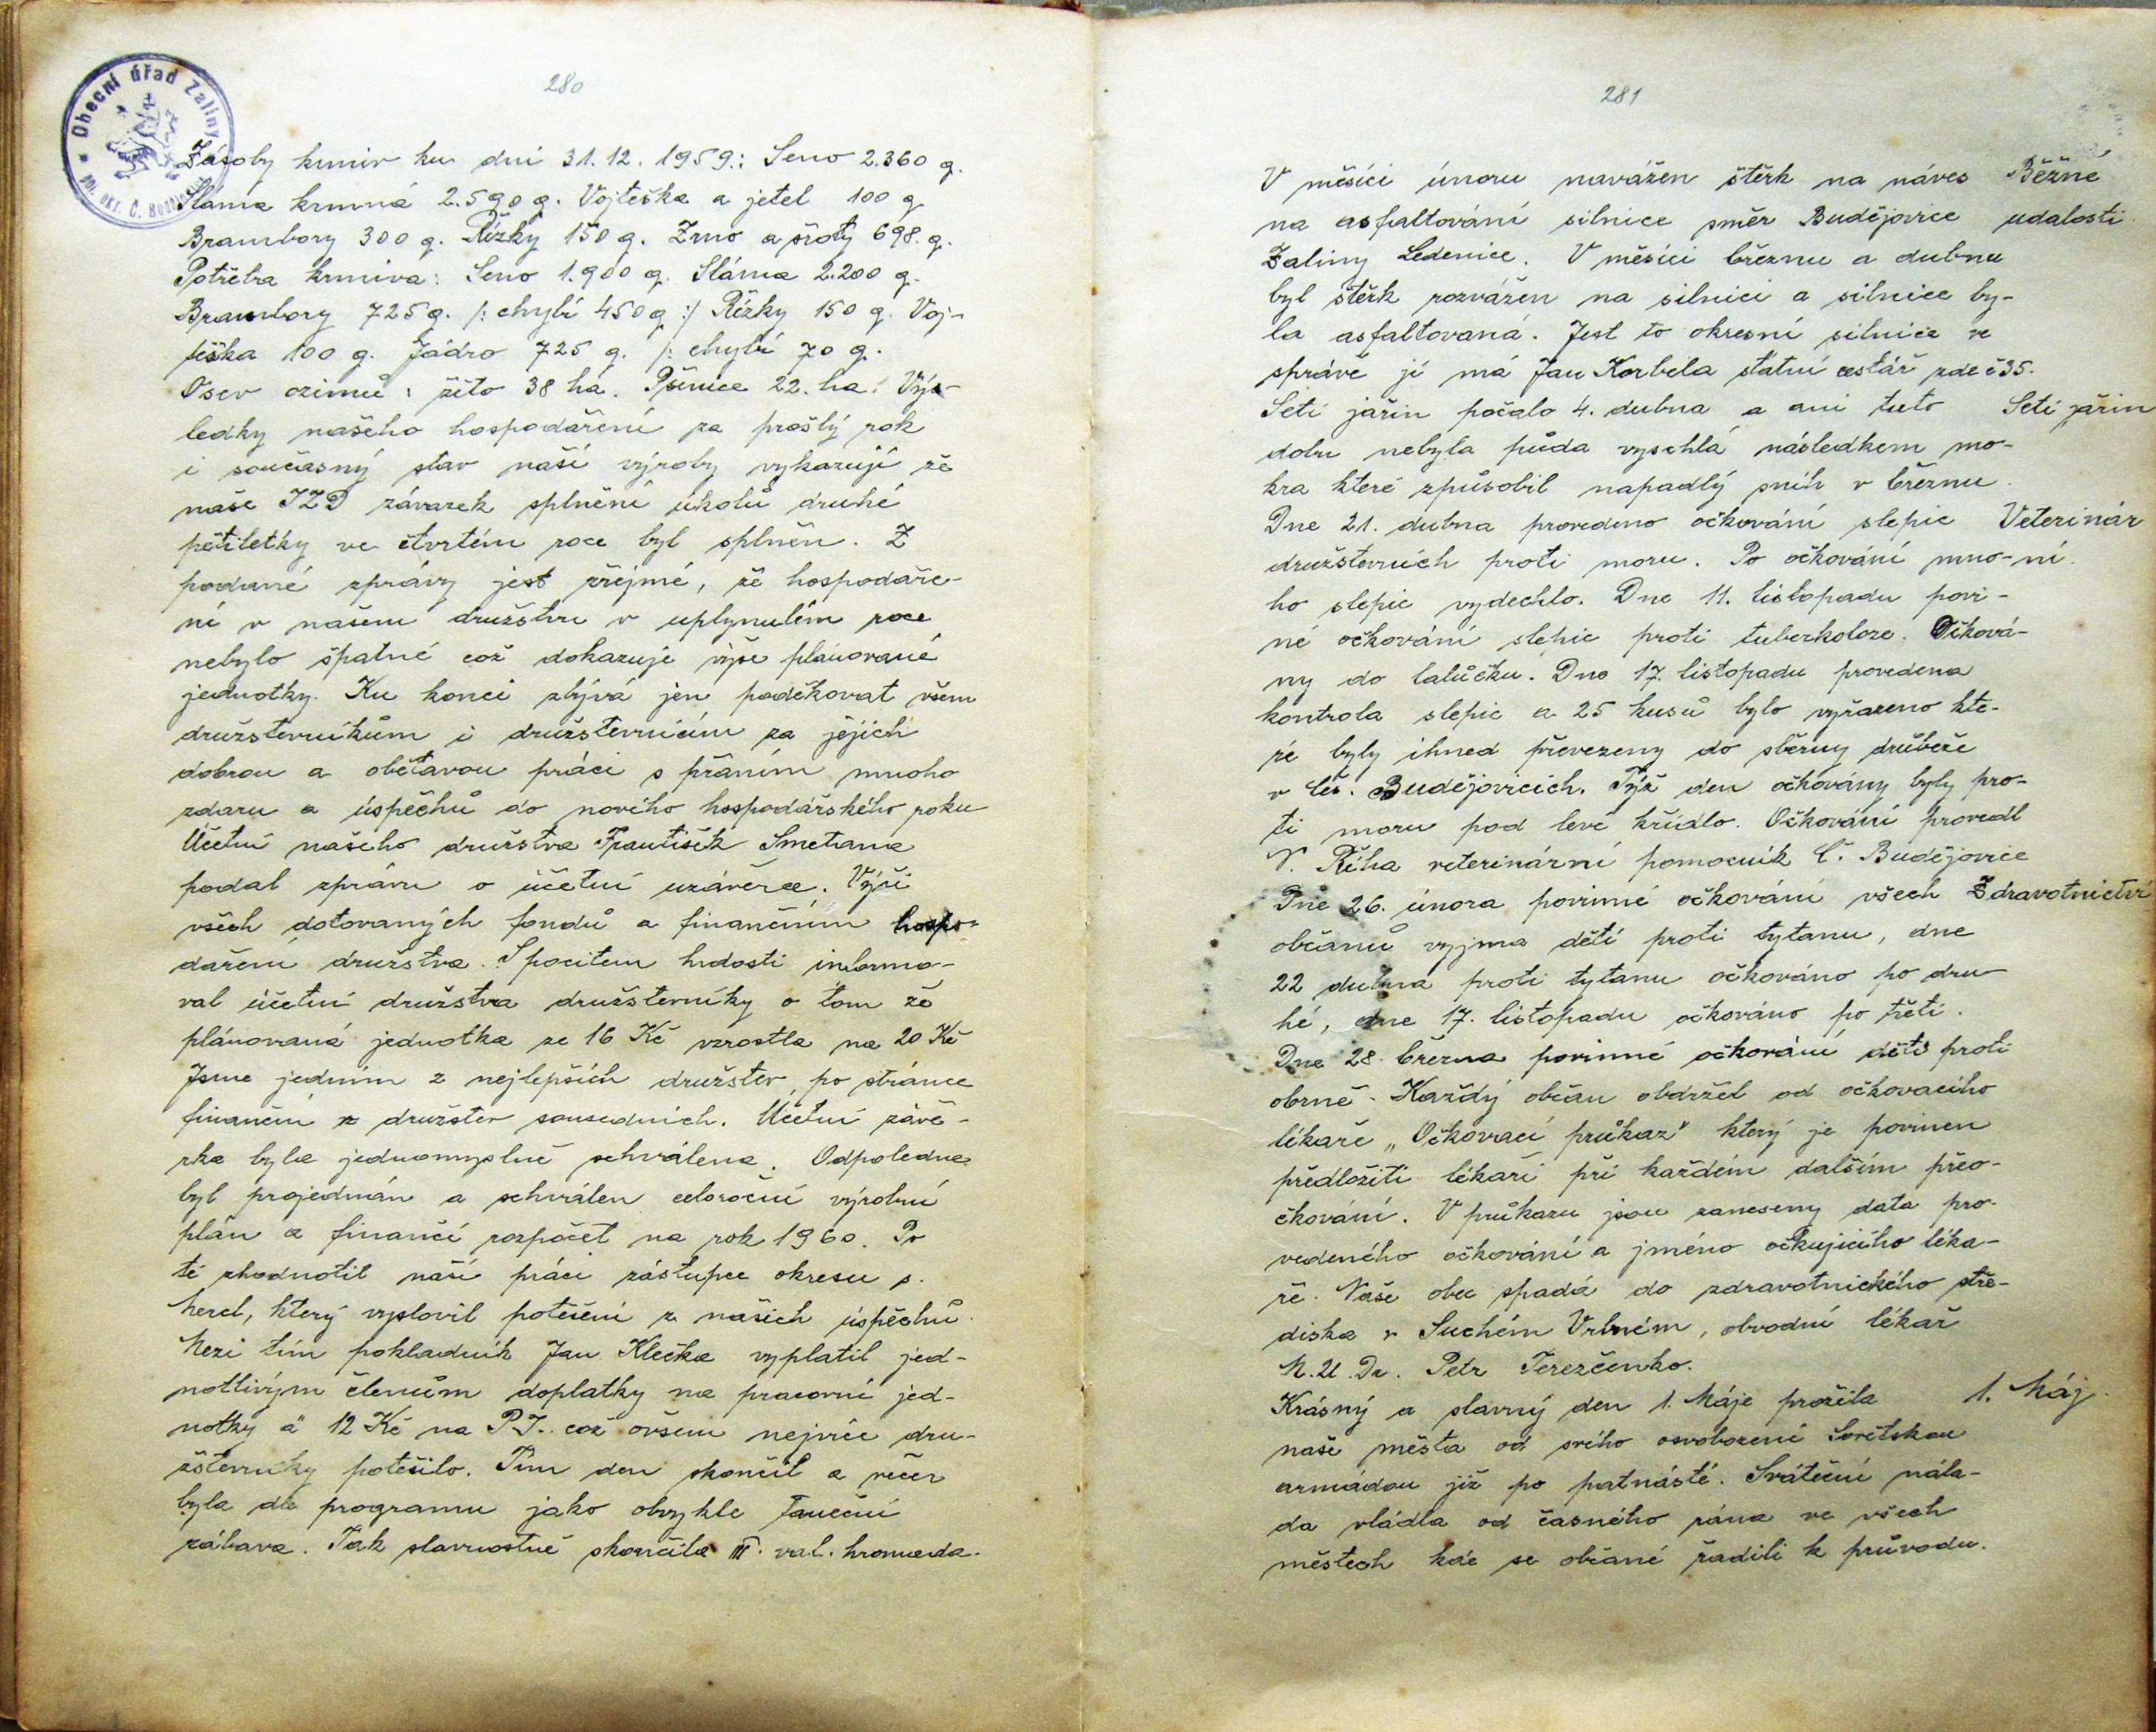 Obecní úřad Zaliny
280
Zásoby krmiv ku dni 31. 12. 1959.: Seno 2.360 q.
Sláma krmná 2.590 q. Vojteška a jetel 100 q
Brambory 300 q. Řízky 150 q. Zrno a šroty 698. q.
Potřeba krmiva: Seno 1.900 q. Sláma 2.200 q.
Brambory 725 q. /: chybí 450 q :/ Řízky 150 q. Voj-
teška 100 q. Jádro 725 q. /: chybí 70 q.
Osev ozimů: žito 38 ha. Pšenice 22. ha. Výs-
ledky našeho hospodaření za prošlý rok
i současný stav naší výroby vykazují že
naše JZD závazek splnění úkolů druhé
pětiletky ve čtvrtém roce byl splněn. Z
podané zprávy jest zřejmé, že hospodaře-
ní v našem družstvu v uplynulém roce
nebylo špatné což dokazuje výše plánované
jednotky. Ku konci zbývá jen poděkovat všem
družsterníkům i družsternicím za jéjich
dobrou a obětavou práci s přáním mnoho
zdaru a úspěchů do nového hospodářského roku
Účetní našeho družstva František Smetana
podal zprávu o účetní uzávěrce. Výši
všech dotovaných fondů a finančním hospo-
daření družstva. S pocitem hrdosti informo-
val účetní družstva družsterníky o tom že
plánovaná jednotka ze 16 Kč vzrostla na 20 Kč
Jsme jedním z nejlepších družstev po stránce
finanční z družstev sousedních. Účetní závě-
rka byla jednomyslně schválena. Odpoledne
byl projednán a schválen celoroční výrobní
plán a finančí rozpočet na rok 1960. Po
té zhodnotil naší práci zástupce okresu s.
Nerel, který vyslovil potěšení z našich úspěchů.
Mezi tím pokladník Jan Klečka vyplatil jed-
notlivým členům doplatky na pracovní jed-
notky á 12 Kč na P.J. což ovšem nejvíce dru-
žsternicky potěšilo. Tím den skončil a večer
byla dle programu jako obvykle taneční
zábava. Tak slavnostně skončila III. val. hromada.
281
V měsíci únoru navážen štěrk na náves Běžné
na asfaltování silnice směr Budějovice udalosti
Zaliny Ledenice. V měsíci březnu a dubnu
byl štěrk rozvážen na silnici a silnice by-
la asfaltovaná. Jest to okresní silnice ve
správě jí má Jan Korbela státní cestář zde č 35.
Setí jařin počalo 4. dubna a ani tuto Setí jařin
dobu nebyla půda vyschlá následkem mo-
kra které způsobil napadlý sníh v březnu.
Dne 21. dubna provedeno očkování slepic Veterinár
družsterních proti moru. Po očkování mno- ní.
ho slepic vydechlo. Dne 11. listopadu povi-
né očkování slepic proti tuberkoloze. Očková-
ny do lalůčku. Dne 17. listopadu provedena
kontrola slepic a 25 kusů bylo vyřazeno kte-
ré byly ihned převezeny do sběrny drůbeže
v Čes. Budějovicích. Týž den očkovány byly pro-
ti moru pod levé křídlo. Očkování provedl
V. Říha veterinární pomocník Č. Budějovice
Dne 26. února povinné očkování všech Zdravotnictví
občanů vyjma dětí proti tytanu, dne
22 dubna proti tytanu očkováno po dru-
hé, dne 17. listopadu očkováno po třetí.
Dne 28. března povinné očkování dětí proti
obrně. Každý občan obdržel od očkovacího
lékaře „Očkovací průkaz" který je povinen
předložiti lékaři při každém dalším přeo-
čkování. V průkazu jsou zaneseny data pro-
vedeného očkování a jméno očkujícího léka-
ře. Naše obec spadá do zdravotnického stře-
diska v Suchém Vrbném, obvodní lékař
M.U.Dr. Petr Terezčenko.
Krásný a slavný den 1. Máje prožila 1. Máj.
naše města od svého osvobození Sovětskou
armádou již po patnásté. Sváteční nála-
da vládla od časného rána ve všech
městech kde se občané řadili k průvodu.